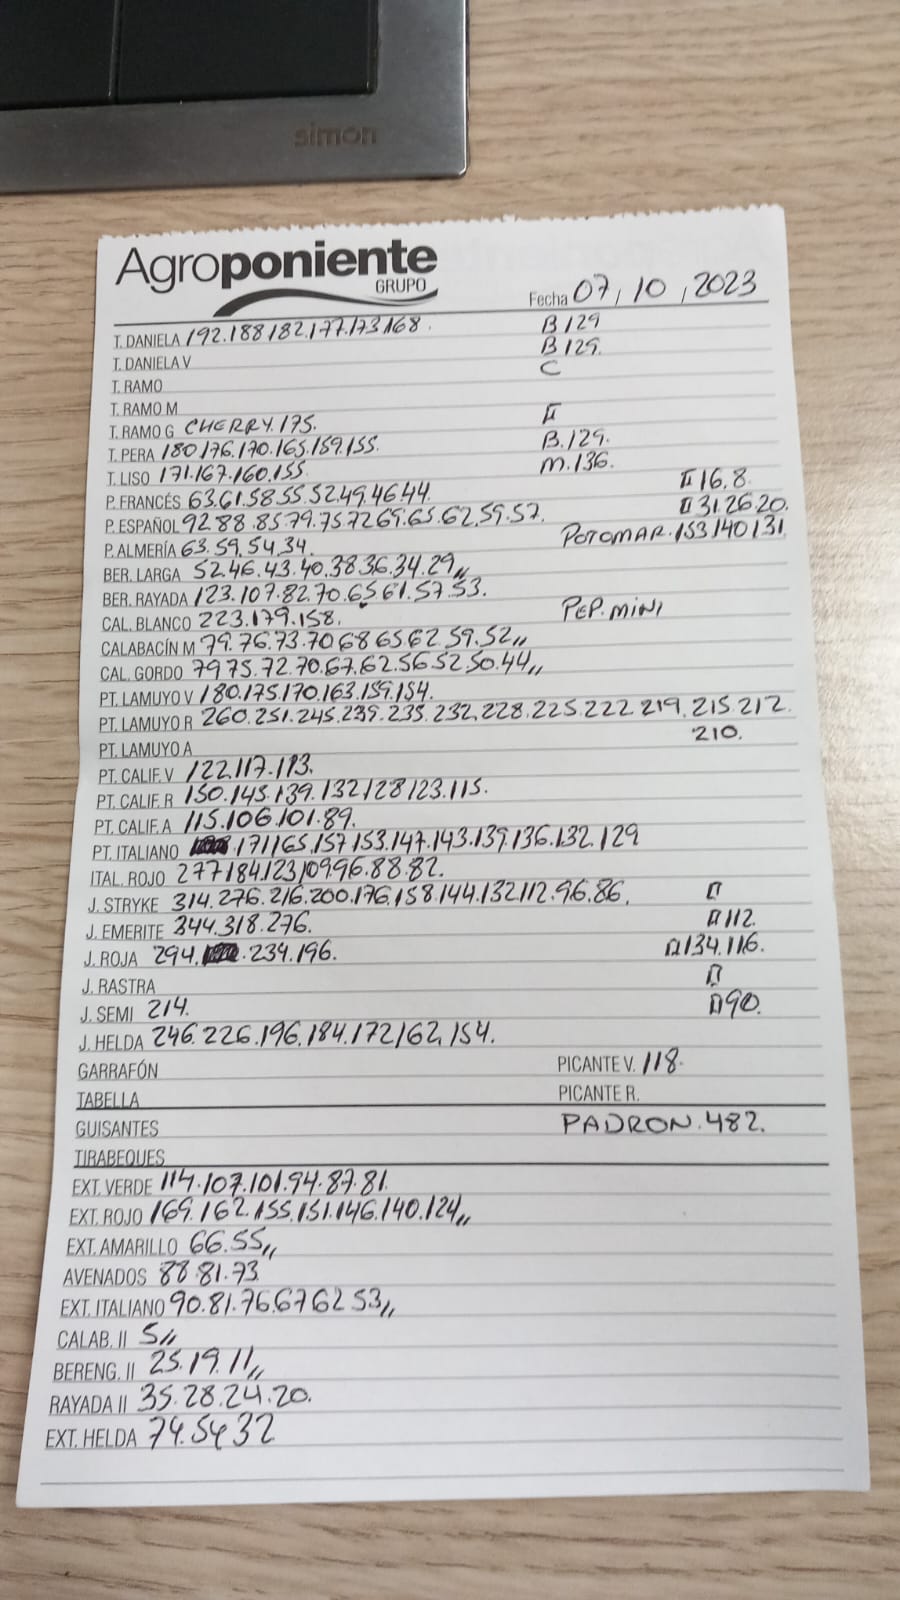 simon
Agroponiente
GRUPO
Fecha 07, 10, 2023
T. DANIELA 192.188.182.177.173.168. B129
T. DANIELA V B129.
T. RAMO C
T. RAMO M
T. RAMO G CHERRY.175. II
T. PERA 180.176.170.165.159.155. B.129.
T. LISO 171.167.160.155. M.136.
P. FRANCÉS 63.61.58.55.52.49.46.44. II 16.8.
P. ESPAÑOL 92.88.85.79.75.72.69.65.62.59.57. II 31.26.20.
P. ALMERÍA 63.59.54.34. POTOMAR.153.140.131.
BER. LARGA 52.46.43.40.38.36.34.29,,
BER. RAYADA 123.107.82.70.65.61.57.53.
CAL. BLANCO 223.179.158. PEP.MINI
CALABACÍN M 79.76.73.70.68.65.62.59.52,,
CAL. GORDO 79.75.72.70.67.62.56.52.50.44,,
PT. LAMUYO V 180.175.170.163.159.154.
PT. LAMUYO R 260.251.245.239.235.232.228.225.222.219.215.212.
210.
PT. LAMUYO A
PT. CALIF. V 122.117.113.
PT. CALIF. R 150.145.139.132.128.123.115.
PT. CALIF. A 115.106.101.89.
PT. ITALIANO 171.165.157.153.147.143.139.136.132.129
ITAL. ROJO 277.184.123.109.96.88.82.
J. STRYKE 314.276.216.200.176.158.144.132.112.96.86. II
J. EMERITE 344.318.276. II 112.
J. ROJA 294. .234.196. II 134.116.
J. RASTRA II
J. SEMI 214. II 90.
J. HELDA 246.226.196.184.172.162.154.
GARRAFÓN PICANTE V. 118.
TABELLA PICANTE R.
GUISANTES PADRON.482.
TIRABEQUES
EXT. VERDE 114.107.101.94.87.81.
EXT. ROJO 169.162.155.151.146.140.124,,
EXT. AMARILLO 66.55,,
AVENADOS 88.81.73
EXT. ITALIANO 90.81.76.67.62.53,,
CALAB. II 5,,
BERENG. II 25.19.11,,
RAYADA II 35.28.24.20.
EXT. HELDA 74.54.32